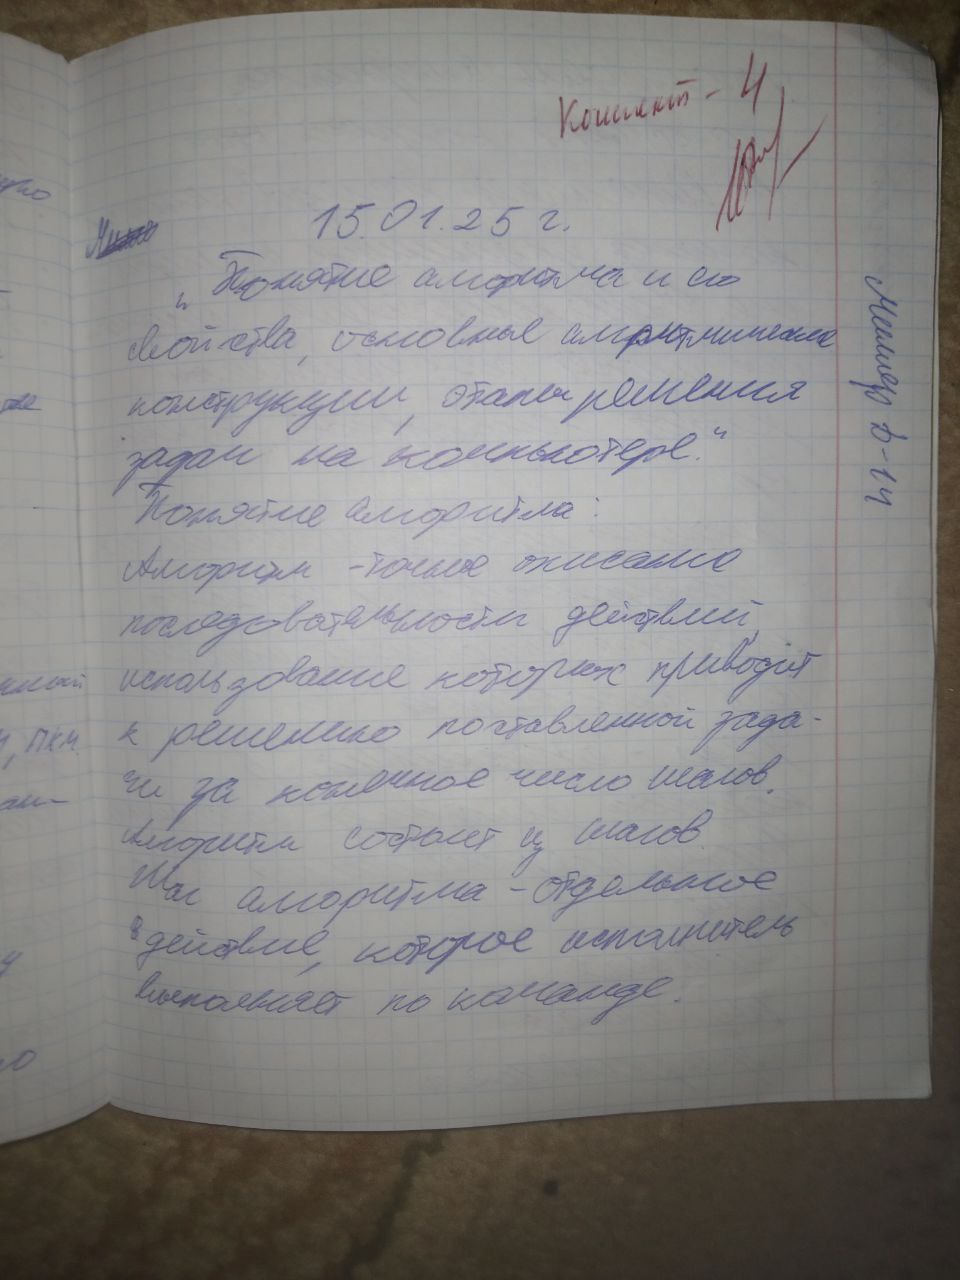 Конспект - 4
15.01.25 г.
„Понятие алгоритма и его
свойства, основные алгоритмические
конструкции, этапы решения
задач на компьютере."
Понятие алгоритма:
Алгоритм - точное описание
последовательности действий,
использование которых приводит
к решению поставленной зада-
чи за конечное число шагов.
Алгоритм состоит из шагов.
Шаг алгоритма - отдельное
действие, которое исполнитель
выполняет по команде.